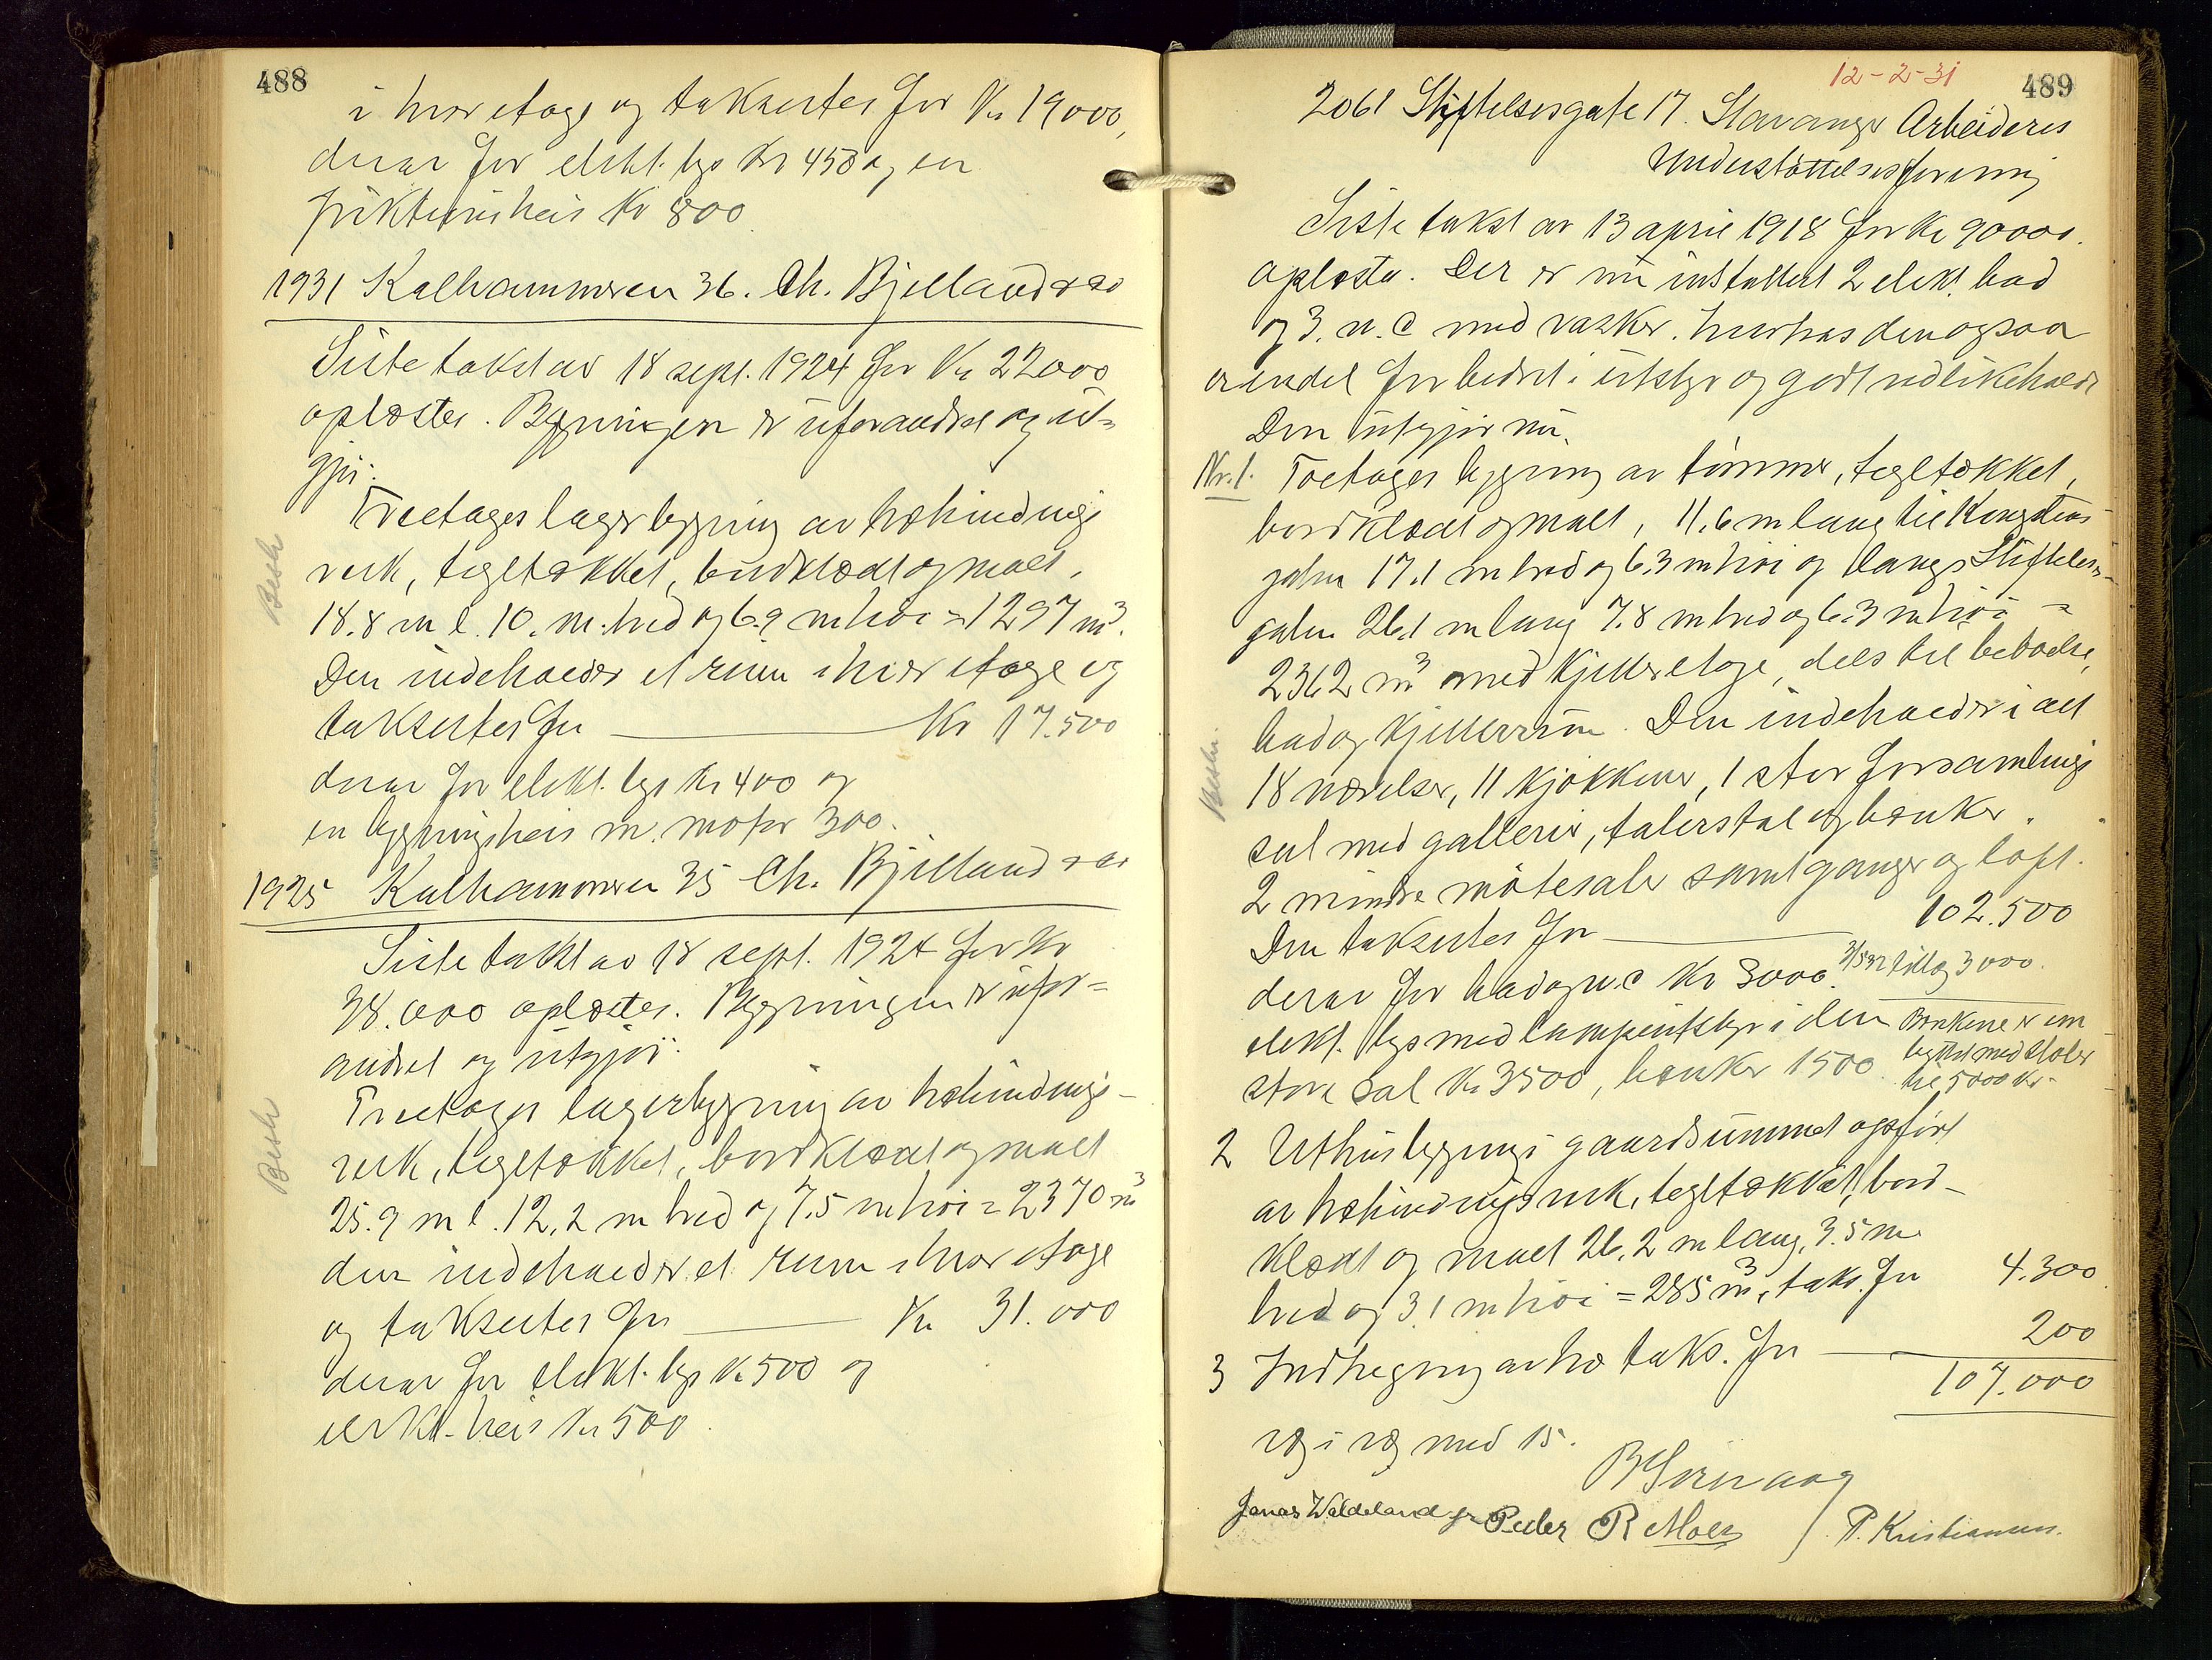 488
i hver etage og takseres for Kr 19000,
derav for elekt. lys Kr 450 og en
friktionsheis Kr 800
1931 Kalhammeren 36. Ch. Bjelland & Co
Siste takst av 18 sept. 1924 for Kr 22000
oplæstes. Bygningen er uforandret og ut-
gjør:
Besk
Treetages lagerbygning av træbindings
verk, tegltækket, bordklædt og malt,
18.8 m l. 10. m. bred og 6.9 m høi = 1297 m³.
Den indeholder et rum i hver etage og
takseres for Kr 17.500
derav for elekt. lys Kr 400 og
en bygningsheis m. motor 300.
1925 Kalhammeren 35 Ch. Bjelland & Co
Siste takst av 18 sept. 1924 for Kr
38.000 oplæstes. Bygningen er ufor-
andret og utgjør:
Besk
Treetages lagerbygning av træbindings-
verk, tegltækket, bordklædt og malt
25.9 m l. 12,2 m bred og 7.5 m høi = 2370 m³
den indeholder et rum i hver etage
og takseres for Kr 31.000
derav for elekt. lys Kr 500 og
elekt. heis Kr 500.
12-2-31
489
2061 Stiftelsesgate 17. Stavanger Arbeideres
Understøttelsesforening
Siste takst av 13 april 1918 for Kr 90000.
oplæstes. Der er nu installert 2 elekt. bad
og 3. w.c med vasker. hvorhos den ogsaa
er endel forbedret i utstyr og godt vedlikeholdt
Den utgjør nu.
Nr. 1. Toetages bygning av tømmer, tegltækket,
bordklædt og malt, 11,6 m lang til Kongsteins
gaten 17.1 m bred og 6.3 m høi og langs Stiftelses-
gaten 26.1 m lang 7.8 m bred og 6.3 m høi =
2362 m³ med kjelleretage, dels til beboelse,
Beskr.
bad og kjellerrum. Den indeholder i alt
18 værelser, 11 kjøkkener, 1 stor forsamlings
sal med gallerier, talerstol og bænker.
2 mindre møtesaler samt ganger og loft.
Den takseres for 102.500
derav for bad og w.c Kr 3000. 3/5 32 tillæg 3000.
elekt. lys med lampeutstyr i den
store sal Kr 3500, bænker 1500
Bænkene er om
byttet med stoler
til 5000 Kr.
2 Uthusbygning i gaardsrummet opført
av træbindingsverk, tegltækket, bord-
klædt og malt 26,2 m lang, 3.5 m
bred og 3.1 m høi = 285 m³, taks. for 4.300
3 Indhegning av træ taks. for 200
107.000
væg i væg med 15.
Jonas Waldeland jr Peder R Moen P. Kristiansen.